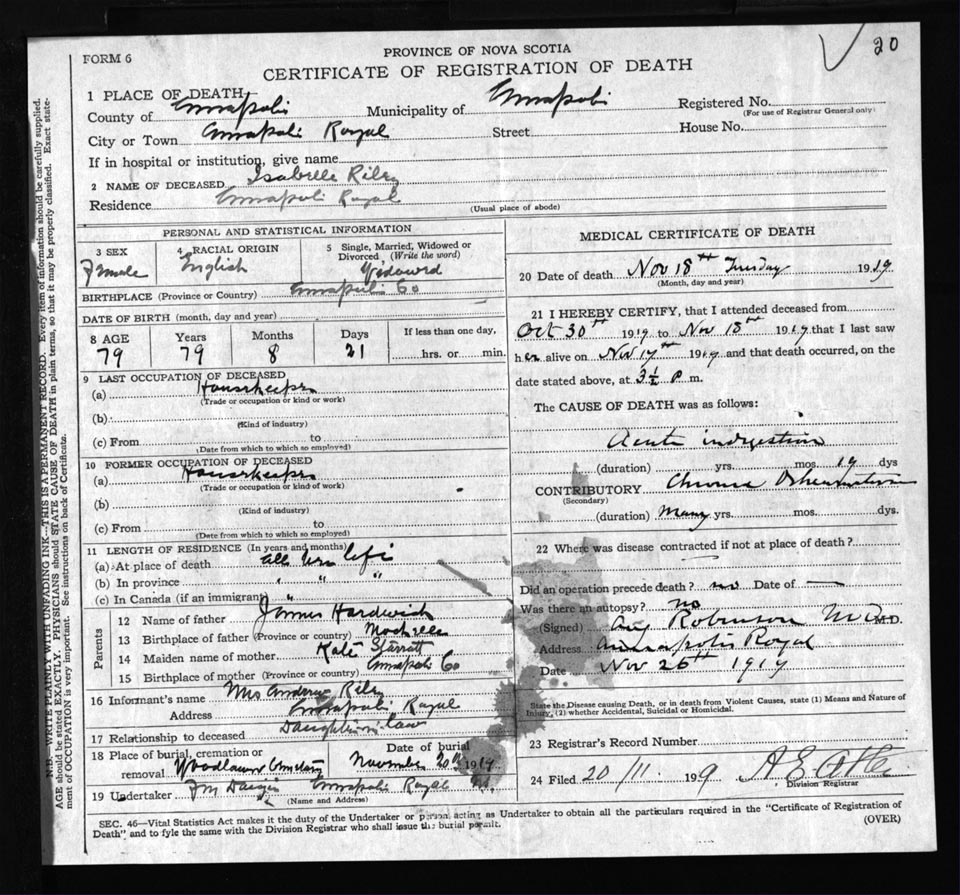 20
PROVINCE OF NOVA SCOTIA
FORM 6
CERTIFICATE OF REGISTRATION OF DEATH
1 PLACE OF DEATH
County of Annapolis Municipality of Annapolis Registered No.
(For use of Registrar General only)
City or Town Annapolis Royal Street House No.
If in hospital or institution, give name
2 NAME OF DECEASED Isabelle Riley
Residence Annapolis Royal
(Usual place of abode)
PERSONAL AND STATISTICAL INFORMATION
3 SEX 4 RACIAL ORIGIN 5 Single, Married, Widowed or Divorced (Write the word)
Female English Widowed
BIRTHPLACE (Province or Country) Annapolis Co
DATE OF BIRTH (month, day and year)
8 AGE Years Months Days If less than one day,
79 79 8 21 hrs. or min.
9 LAST OCCUPATION OF DECEASED
(a) Housekeeper
(Trade or occupation or kind or work)
(b)
(Kind of industry)
(c) From to
(Date from which to which so employed)
10 FORMER OCCUPATION OF DECEASED
(a) Housekeeper
(Trade or occupation or kind of work)
(b)
(Kind of industry)
(c) From to
(Date from which to which so employed)
11 LENGTH OF RESIDENCE (In years and months)
(a) At place of death all her life
(b) In province " " "
(c) In Canada (if an immigrant) "
Parents
12 Name of father James Hardwick
13 Birthplace of father (Province or country) Moschelle
14 Maiden name of mother Kate Starratt
15 Birthplace of mother (Province or country) Annapolis Co
16 Informant's name Mrs Andrew Riley
Address Annapolis Royal
17 Relationship to deceased Daughter in law
18 Place of burial, cremation or removal Woodlawn Cemetery Date of burial November 20th 1919
19 Undertaker Annapolis Royal
(Name and Address)
MEDICAL CERTIFICATE OF DEATH
20 Date of death Nov 18th Tuesday 1919
(Month, day and year)
21 I HEREBY CERTIFY, that I attended deceased from
Oct 30th 1919 to Nov 18th 1919 that I last saw
her alive on Nov 17th 1919 and that death occurred, on the
date stated above, at 3½ P. m.
The CAUSE OF DEATH was as follows:
Acute indigestion
(duration) yrs. mos. 19 dys
CONTRIBUTORY Chronic Rheumatism
(Secondary)
(duration) Many yrs. mos. dys.
22 Where was disease contracted if not at place of death?
Did an operation precede death? no Date of —
Was there an autopsy? no
(Signed) Robinson M.D. M.D.
Address Annapolis Royal
Date Nov 26th 1919
State the Disease causing Death, or in death from Violent Causes, state (1) Means and Nature of
Injury, (2) whether Accidental, Suicidal or Homicidal.
23 Registrar's Record Number
24 Filed 20/11 1919
Division Registrar
SEC. 46—Vital Statistics Act makes it the duty of the Undertaker or person acting as Undertaker to obtain all the particulars required in the "Certificate of Registration of
Death" and to fyle the same with the Division Registrar who shall issue the burial permit. (OVER)
N.B.—WRITE PLAINLY WITH UNFADING INK—THIS IS A PERMANENT RECORD. Every item of information should be carefully supplied.
AGE should be stated EXACTLY. PHYSICIANS should STATE CAUSE OF DEATH in plain terms, so that it may be properly classified. Exact state-
ment of OCCUPATION is very important. See instructions on back of Certificate.